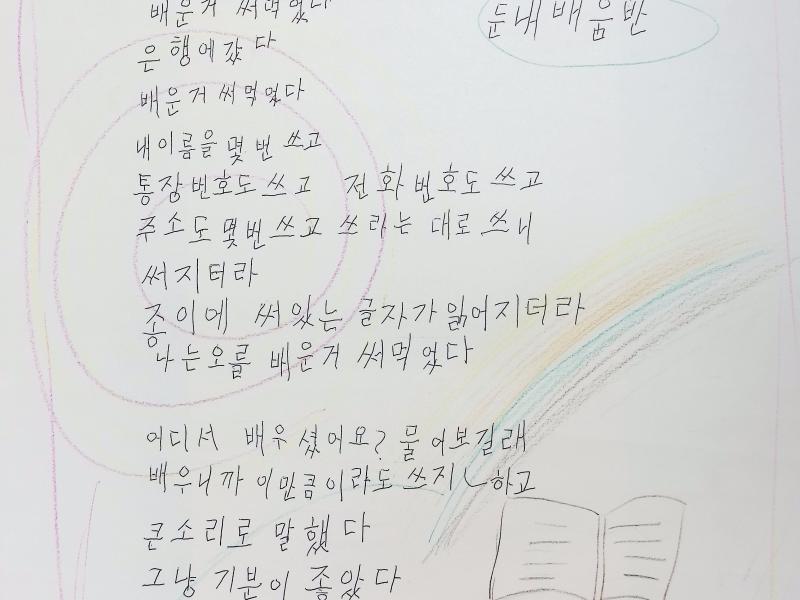 배운거 써먹었다
둔내배움반
은행에갔다
배운거 써먹었다
내이름을 몇 번 쓰고
통장번호도쓰고 전화번호도쓰고
주소도몇번쓰고 쓰라는 대로쓰니
써지터라
종이에 써있는 글자가 읽어지더라
나는오를 배운거 써먹었다
어디서 배우셨어요? 물어보길래
배우니까 이만큼이라도 쓰지~하고
큰소리로 말했다
그냥 기분이 좋았다